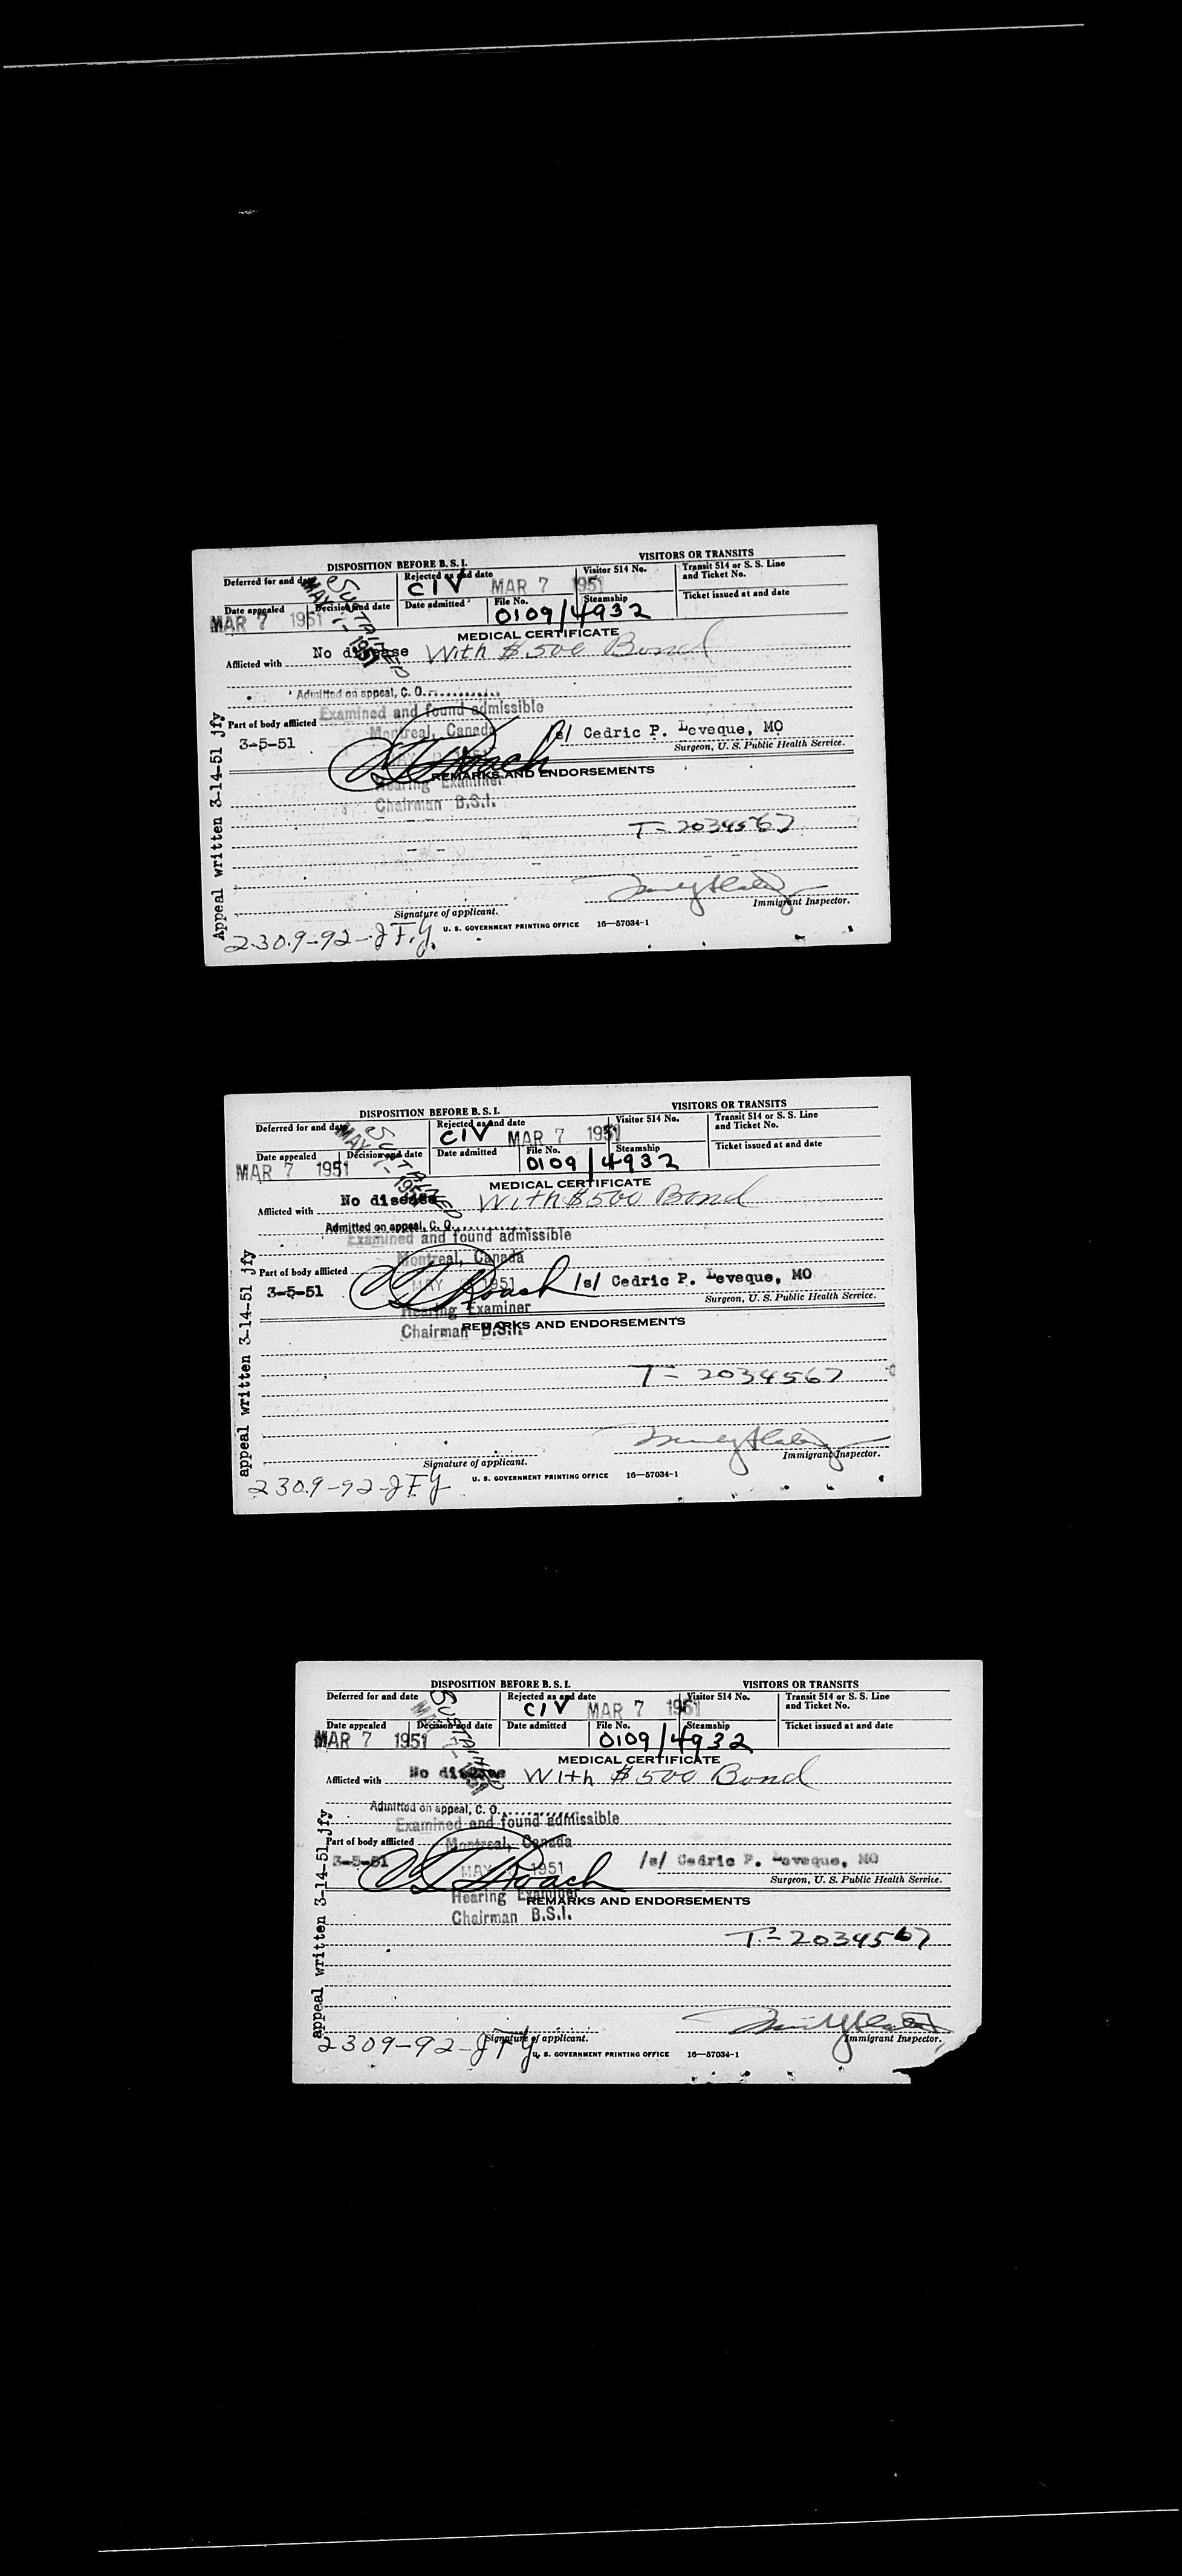 DISPOSITION BEFORE B. S. I.
VISITORS OR TRANSITS
Deferred for and date
Rejected as and date
CIV MAR 7 1951
Visitor 514 No.
Transit 514 or S. S. Line and Ticket No.
Date appealed
MAR 7 1951
Decision and date
SUSTAINED
MAY 1 - 1951
Date admitted
File No.
0109/4932
Steamship
Ticket issued at and date
MEDICAL CERTIFICATE
Afflicted with No disease With $500 Bond
Admitted on appeal, C. O.
Examined and found admissible
Part of body afflicted
Montreal, Canada
3-5-51
Roach
/s/ Cedric P. Leveque, MO
Surgeon, U. S. Public Health Service.
REMARKS AND ENDORSEMENTS
Hearing Examiner
Chairman B.S.I.
T-2034567
Signature of applicant.
Immigrant Inspector.
U. S. GOVERNMENT PRINTING OFFICE 16—57034-1
2309-92-JFY
Appeal written 3-14-51 jfy
DISPOSITION BEFORE B. S. I.
VISITORS OR TRANSITS
Deferred for and date
Rejected as and date
CIV MAR 7 1951
Visitor 514 No.
Transit 514 or S. S. Line and Ticket No.
Date appealed
MAR 7 1951
Decision and date
SUSTAINED
MAY 1 - 1951
Date admitted
File No.
0109/4932
Steamship
Ticket issued at and date
MEDICAL CERTIFICATE
Afflicted with No disease With $500 Bond
Admitted on appeal, C. O.
Examined and found admissible
Montreal, Canada
Part of body afflicted
3-5-51
MAY 1951
Roach
/s/ Cedric P. Leveque, MO
Surgeon, U. S. Public Health Service.
Hearing Examiner
REMARKS AND ENDORSEMENTS
Chairman B.S.I.
T-2034567
Signature of applicant.
Immigrant Inspector.
U. S. GOVERNMENT PRINTING OFFICE 16—57034-1
2309-92-JFY
appeal written 3-14-51 jfy
DISPOSITION BEFORE B. S. I.
VISITORS OR TRANSITS
Deferred for and date
Rejected as and date
CIV MAR 7 1951
Visitor 514 No.
Transit 514 or S. S. Line and Ticket No.
Date appealed
MAR 7 1951
Decision and date
SUSTAINED
MAY 1 - 1951
Date admitted
File No.
0109/4932
Steamship
Ticket issued at and date
MEDICAL CERTIFICATE
Afflicted with No disease With $500 Bond
Admitted on appeal, C. O.
Examined and found admissible
Part of body afflicted
Montreal, Canada
3-5-51
MAY 1951
Roach
/s/ Cedric P. Leveque, MO
Surgeon, U. S. Public Health Service.
Hearing Examiner
REMARKS AND ENDORSEMENTS
Chairman B.S.I.
T-2034567
Signature of applicant.
Immigrant Inspector.
U. S. GOVERNMENT PRINTING OFFICE 16—57034-1
2309-92-JFY
appeal written 3-14-51 jfy